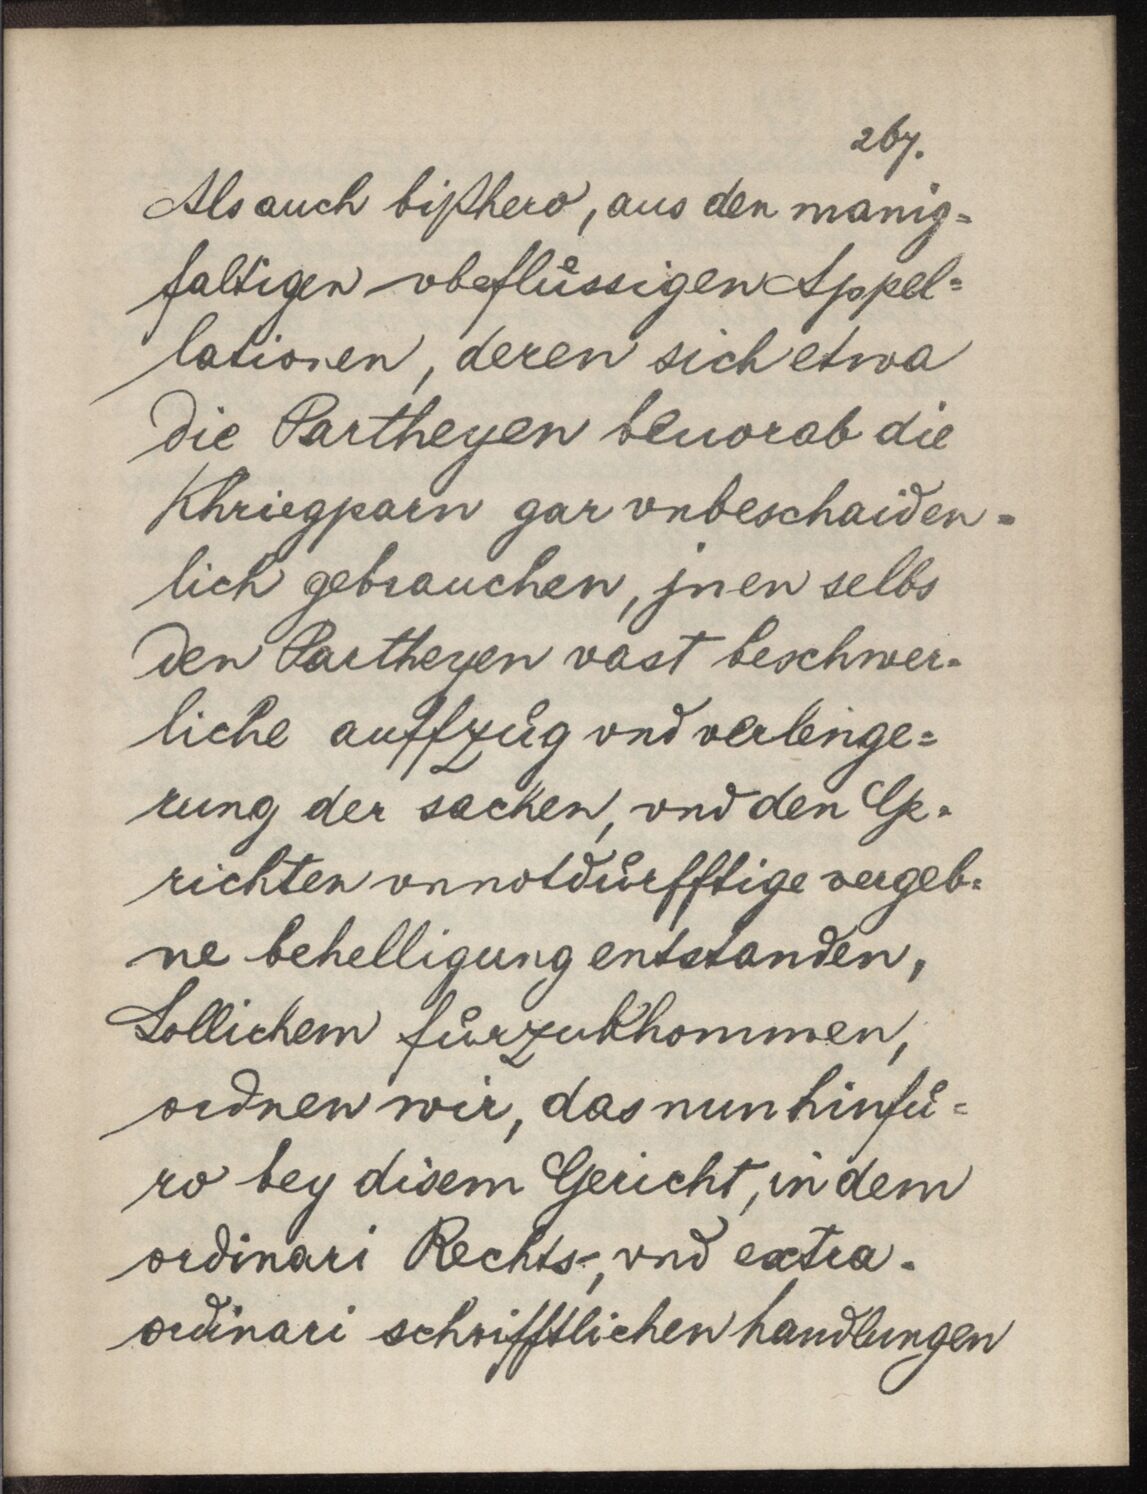 267.
Als auch bißhero, aus den manig=
faltigen vbeflüssigen Appel=
lationen, deren sich etwa
die Partheyen beuorab die
Khriegparn gar vnbeschaiden=
lich gebrauchen, jnen selbs
den Partheyen vast beschwer=
liche auffzüg vnd verlenge=
rung der sachen, vnd den Ge=
richten vnnotdürfftige vergeb=
ne behelligung entstanden,
Sollichem fürzukhommen,
ordnen wir, das nun hinfü=
ro bey disem Gericht, in dem
ordinari Rechts-, vnd extra=
ordinari schrifftlichen handlungen